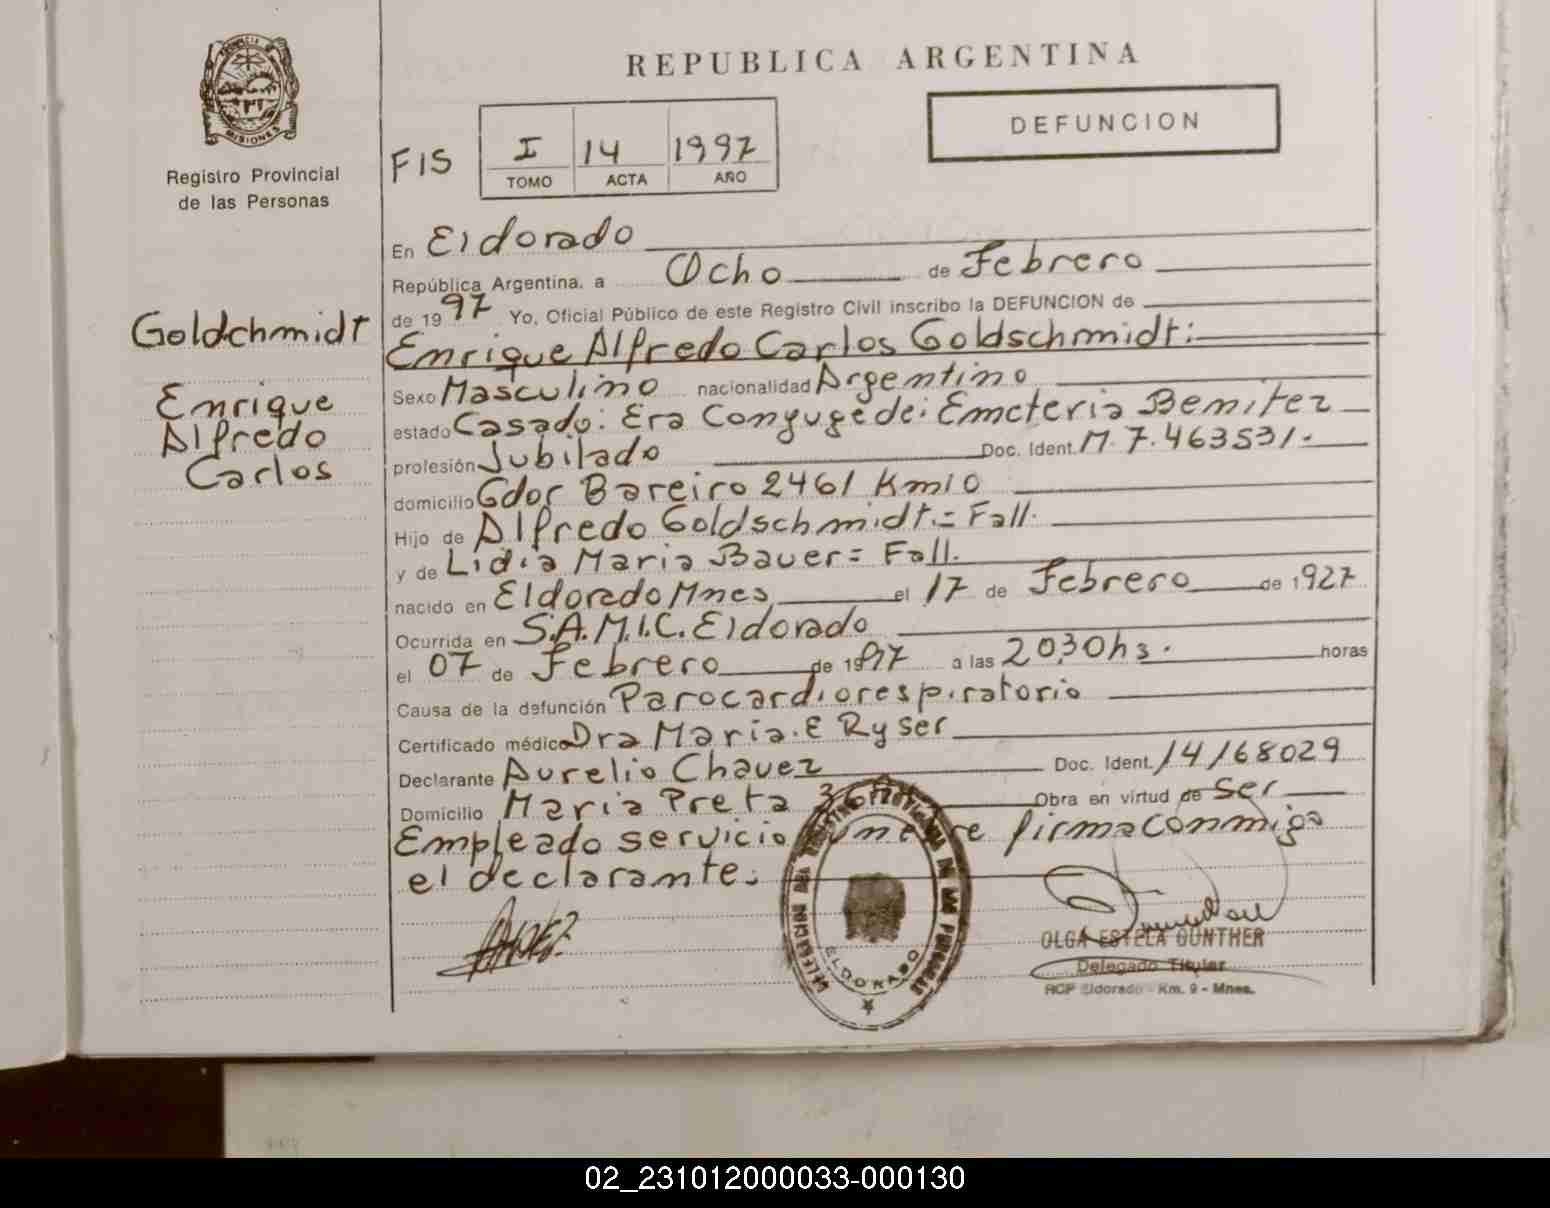 PROVINCIA DE
MISIONES
Registro Provincial
de las Personas
Goldchmidt
Enrique
Alfredo
Carlos
REPUBLICA ARGENTINA
DEFUNCION
FIS
I 14 1997
TOMO ACTA AÑO
En Eldorado
República Argentina, a Ocho de Febrero
de 1997 Yo, Oficial Público de este Registro Civil inscribo la DEFUNCION de
Enrique Alfredo Carlos Goldschmidt:
Sexo Masculino nacionalidad Argentino
estado Casado: Era Conyuge de: Emeteria Benitez
profesión Jubilado Doc. Ident. M. 7.463531.
domicilio Gdor Bareiro 2461 Km10
Hijo de Alfredo Goldschmidt.= Fall.
y de Lidia Maria Bauer= Fall.
nacido en Eldorado Mnes, el 17 de Febrero de 1927
Ocurrida en S.A.M.I.C. Eldorado
el 07 de Febrero de 1997 a las 2030hs. horas
Causa de la defunción Parocardiorespiratorio
Certificado médico Dra Maria. E Ryser
Declarante Aurelio Chavez Doc. Ident. 14168029
Domicilio Maria Preta Obra en virtud de Ser
Empleado servicio funebre firma conmigo
el declarante.
DELEGACION DEL REGISTRO PROVINCIAL DE LAS PERSONAS
ELDORADO
OLGA ESTELA GUNTHER
Delegado Titular
RCP Eldorado - Km. 9 - Mnes.
02_231012000033-000130